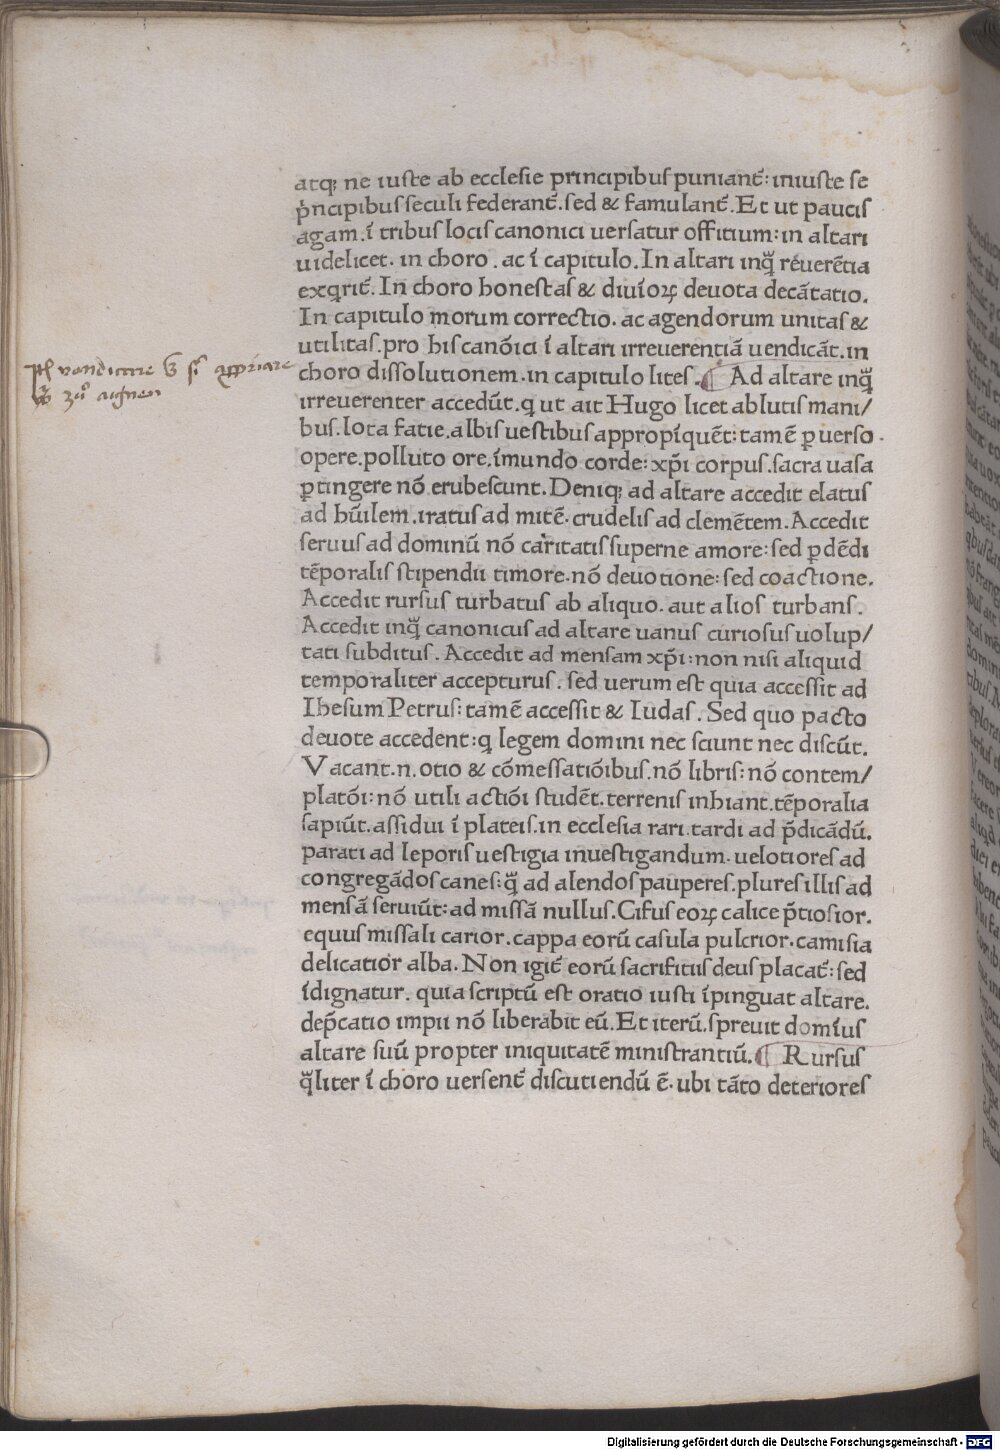 atq; ne iuste ab ecclesie principibus puniant᷒: iniuste se
p̃ncipibus seculi federant᷒. sed & famulant᷒. Et ut paucis
agam. ĩ tribus locis canonici uersatur offitium: in altari
uidelicet. in choro. ac ĩ capitulo. In altari inq̃ reuerẽtia
exqrit᷒. In choro honestas & diuĩoꝝ deuota decãtatio.
In capitulo morum correctio. ac agendorum unitas &
utilitas. pro his canõici ĩ altari irreuerentiã uendicãt. in
choro dissolutionem. in capitulo lites. ¶ Ad altare inq̃
irreuerenter accedũt. q ut ait Hugo licet ablutis mani/
bus. lota fatie. albis uestibus appropĩquẽt: tamẽ ꝑuerso
opere. polluto ore. ĩmundo corde: xp̃i corpus. sacra uasa
ꝑtingere nõ erubescunt. Deniq; ad altare accedit elatus
ad hũilem. iratus ad mitẽ. crudelis ad clemẽtem. Accedit
seruus ad dominũ nõ caritatis superne amore: sed ꝑdẽdi
tẽporalis stipendii timore. nõ deuotione: sed coactione.
Accedit rursus turbatus ab aliquo. aut alios turbans.
Accedit inq̃ canonicus ad altare uanus curiosus uolup/
tati subditus. Accedit ad mensam xp̃i: non nisi aliquid
temporaliter accepturus. sed uerum est quia accessit ad
Ihesum Petrus: tamẽ accessit & Iudas. Sed quo pacto
deuote accedent: q legem domini nec sciunt nec discũt.
Vacant. n. otio & cõmessatiõibus. nõ libris: nõ contem/
platõi: nõ utili actiõi studẽt. terrenis inhiant. tẽporalia
sapiũt. assidui ĩ plateis. in ecclesia rari. tardi ad p̃dicãdũ.
parati ad leporis uestigia inuestigandum. uelotiores ad
congregãdos canes: q̃ ad alendos pauperes. plures illis ad
mensã seruiũt: ad missã nullus. Cifus eoꝝ calice p̃tiosior.
equus missali carior. cappa eorũ casula pulcrior. camisia
delicatior alba. Non igit᷒ eorũ sacrifitiis deus placat᷒: sed
ĩdignatur. quia scriptũ est oratio iusti ĩpinguat altare.
dep̃catio impii nõ liberabit eũ. Et iterũ. spreuit domĩus
altare suũ propter iniquitatẽ ministrantiũ. ¶ Rursus
q̃liter ĩ choro uersent᷒ discutiendũ ẽ. ubi tãto deteriores
Digitalisierung gefördert durch die Deutsche Forschungsgemeinschaft - DFG